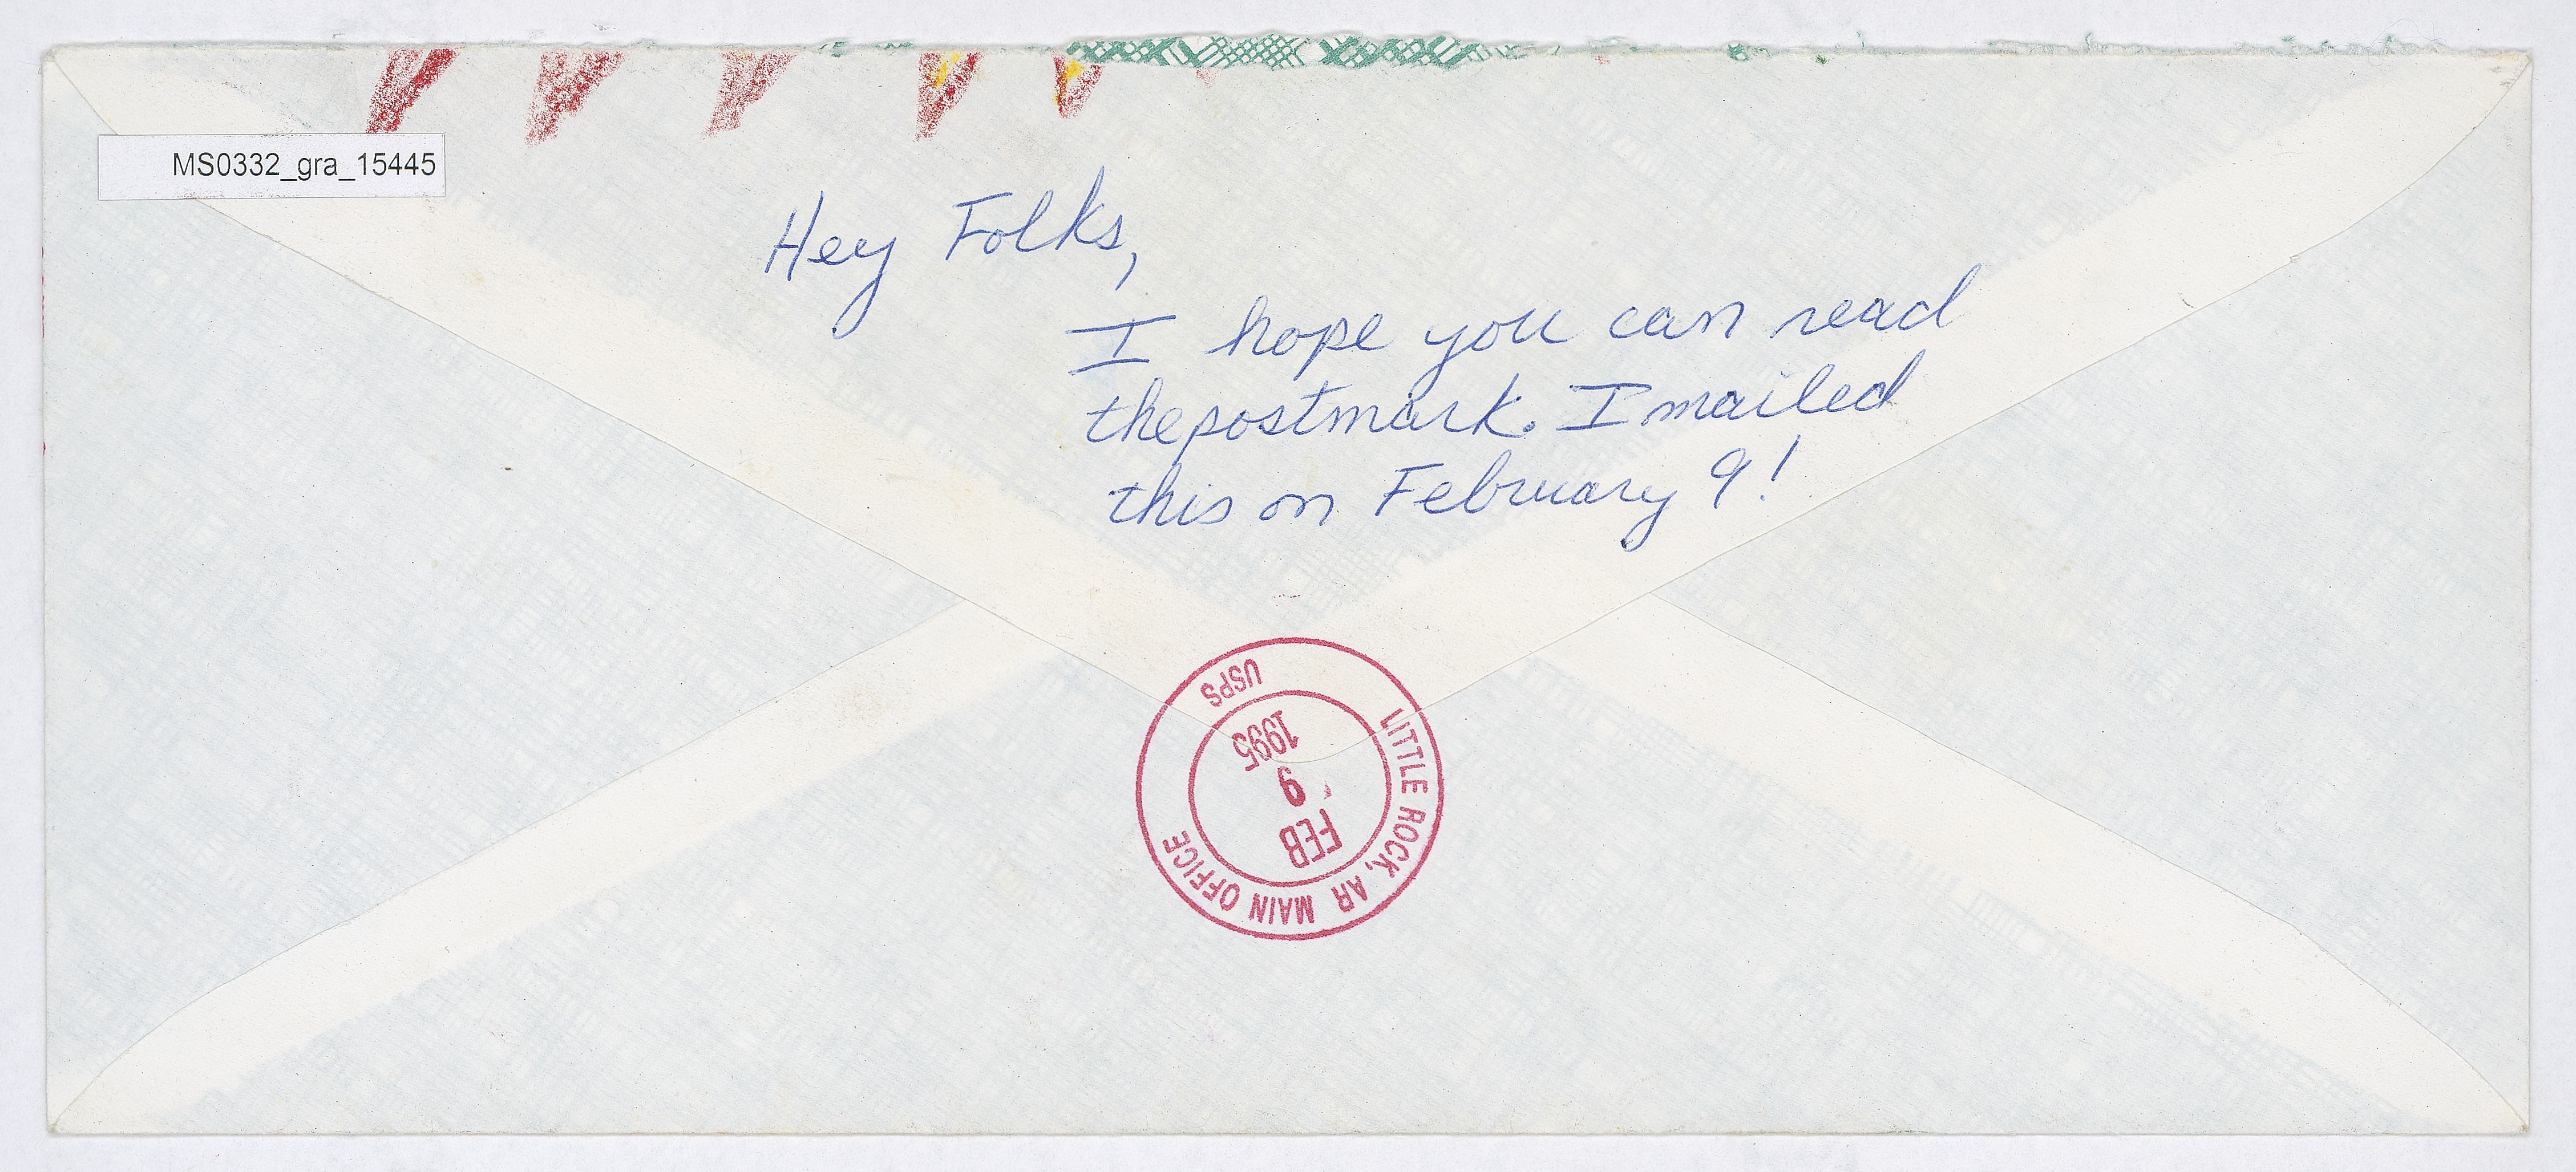 MS0332_gra_15445
Hey Folks,
I hope you can read
the postmark. I mailed
this on February 9!
USPS
LITTLE ROCK, AR MAIN OFFICE
FEB
9
1995